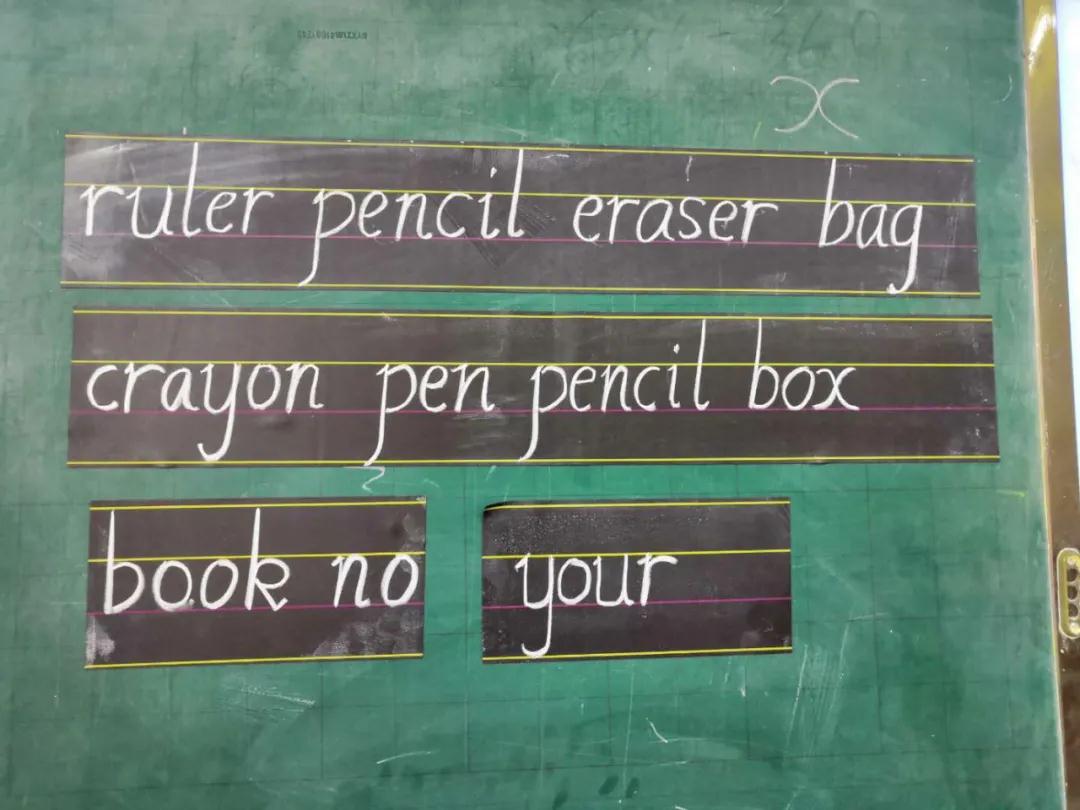 x
ruler pencil eraser bag
crayon pen pencil box
book no your